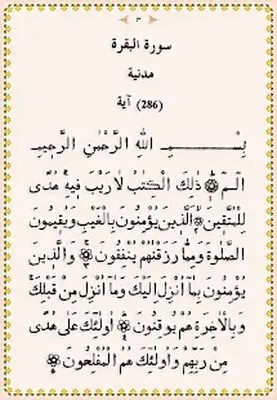 ٣
سورة البقرة
مدنية
(286) آية
بِسْــــــمِ اللهِ الرَّحْمٰنِ الرَّحِيمِ
الٓمٓ ۝ ذٰلِكَ الْكِتٰبُ لَا رَيْبَ فِيهِ هُدًى
لِلْمُتَّقِينَ ۝ الَّذِينَ يُؤْمِنُونَ بِالْغَيْبِ وَيُقِيمُونَ
الصَّلٰوةَ وَمِمَّا رَزَقْنٰهُمْ يُنْفِقُونَ ۝ وَالَّذِينَ
يُؤْمِنُونَ بِمَا اُنْزِلَ اِلَيْكَ وَمَا اُنْزِلَ مِنْ قَبْلِكَ
وَبِالْاٰخِرَةِ هُمْ يُوقِنُونَ ۝ اُولٰٓئِكَ عَلٰى هُدًى
مِنْ رَبِّهِمْ وَاُولٰٓئِكَ هُمُ الْمُفْلِحُونَ ۝